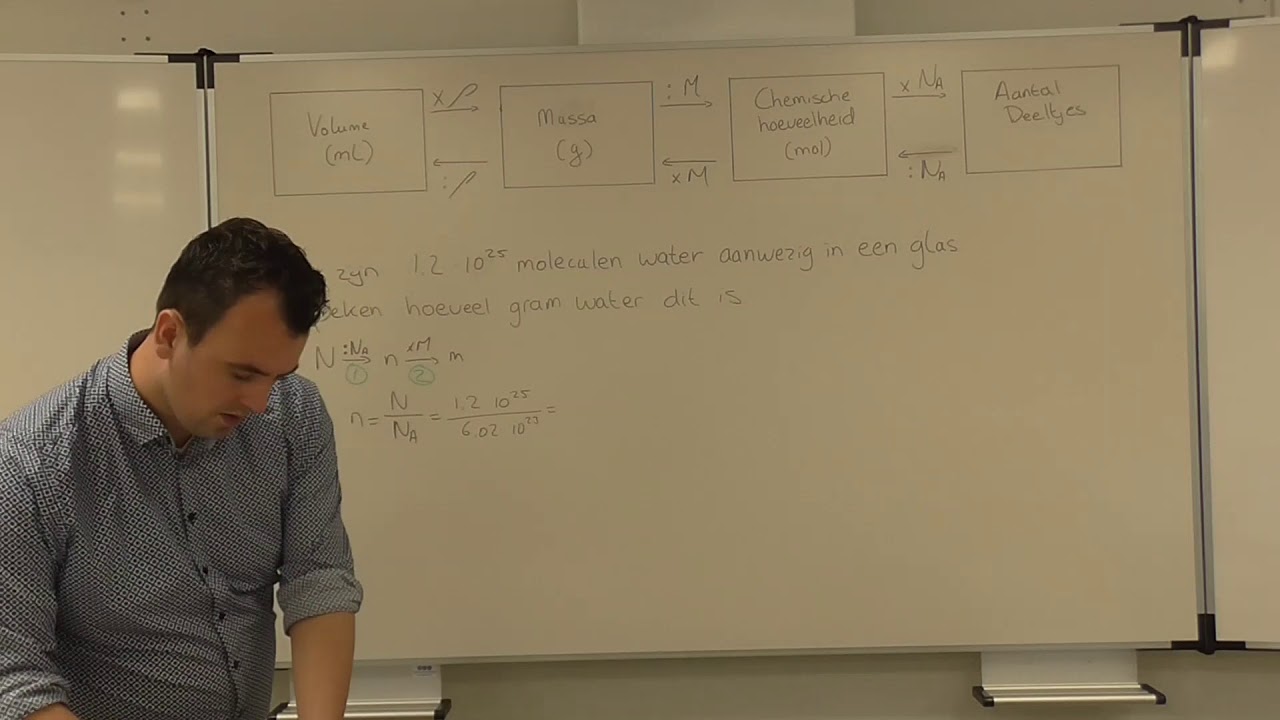 Volume
(mL)
xρ
:ρ
Massa
(g)
: M
xM
Chemische
hoeveelheid
(mol)
x N_A
: N_A
Aantal
Deeltjes
zijn 1.2 · 10²⁵ moleculen water aanwezig in een glas
eken hoeveel gram water dit is
N :N_A → n xM → m
① ②
n = N / N_A = 1.2 10²⁵ / 6.02 10²³ =